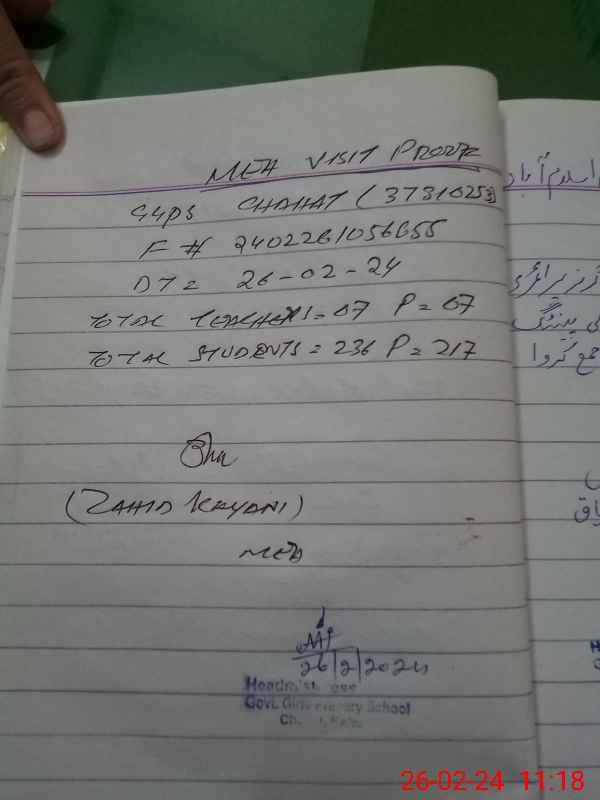 MEA VISIT PROOF
GGPS CHAHAT (37310253)
F # 2402261056655
DT = 26-02-24
TOTAL TEACHERS = 07 P = 07
TOTAL STUDENTS = 236 P = 217
(ZAHID KAYANI)
MEA
26/2/2024
Headmistress
Govt. Girls Primary School
اسلام آباد
جمع کروا
26-02-24 11:18